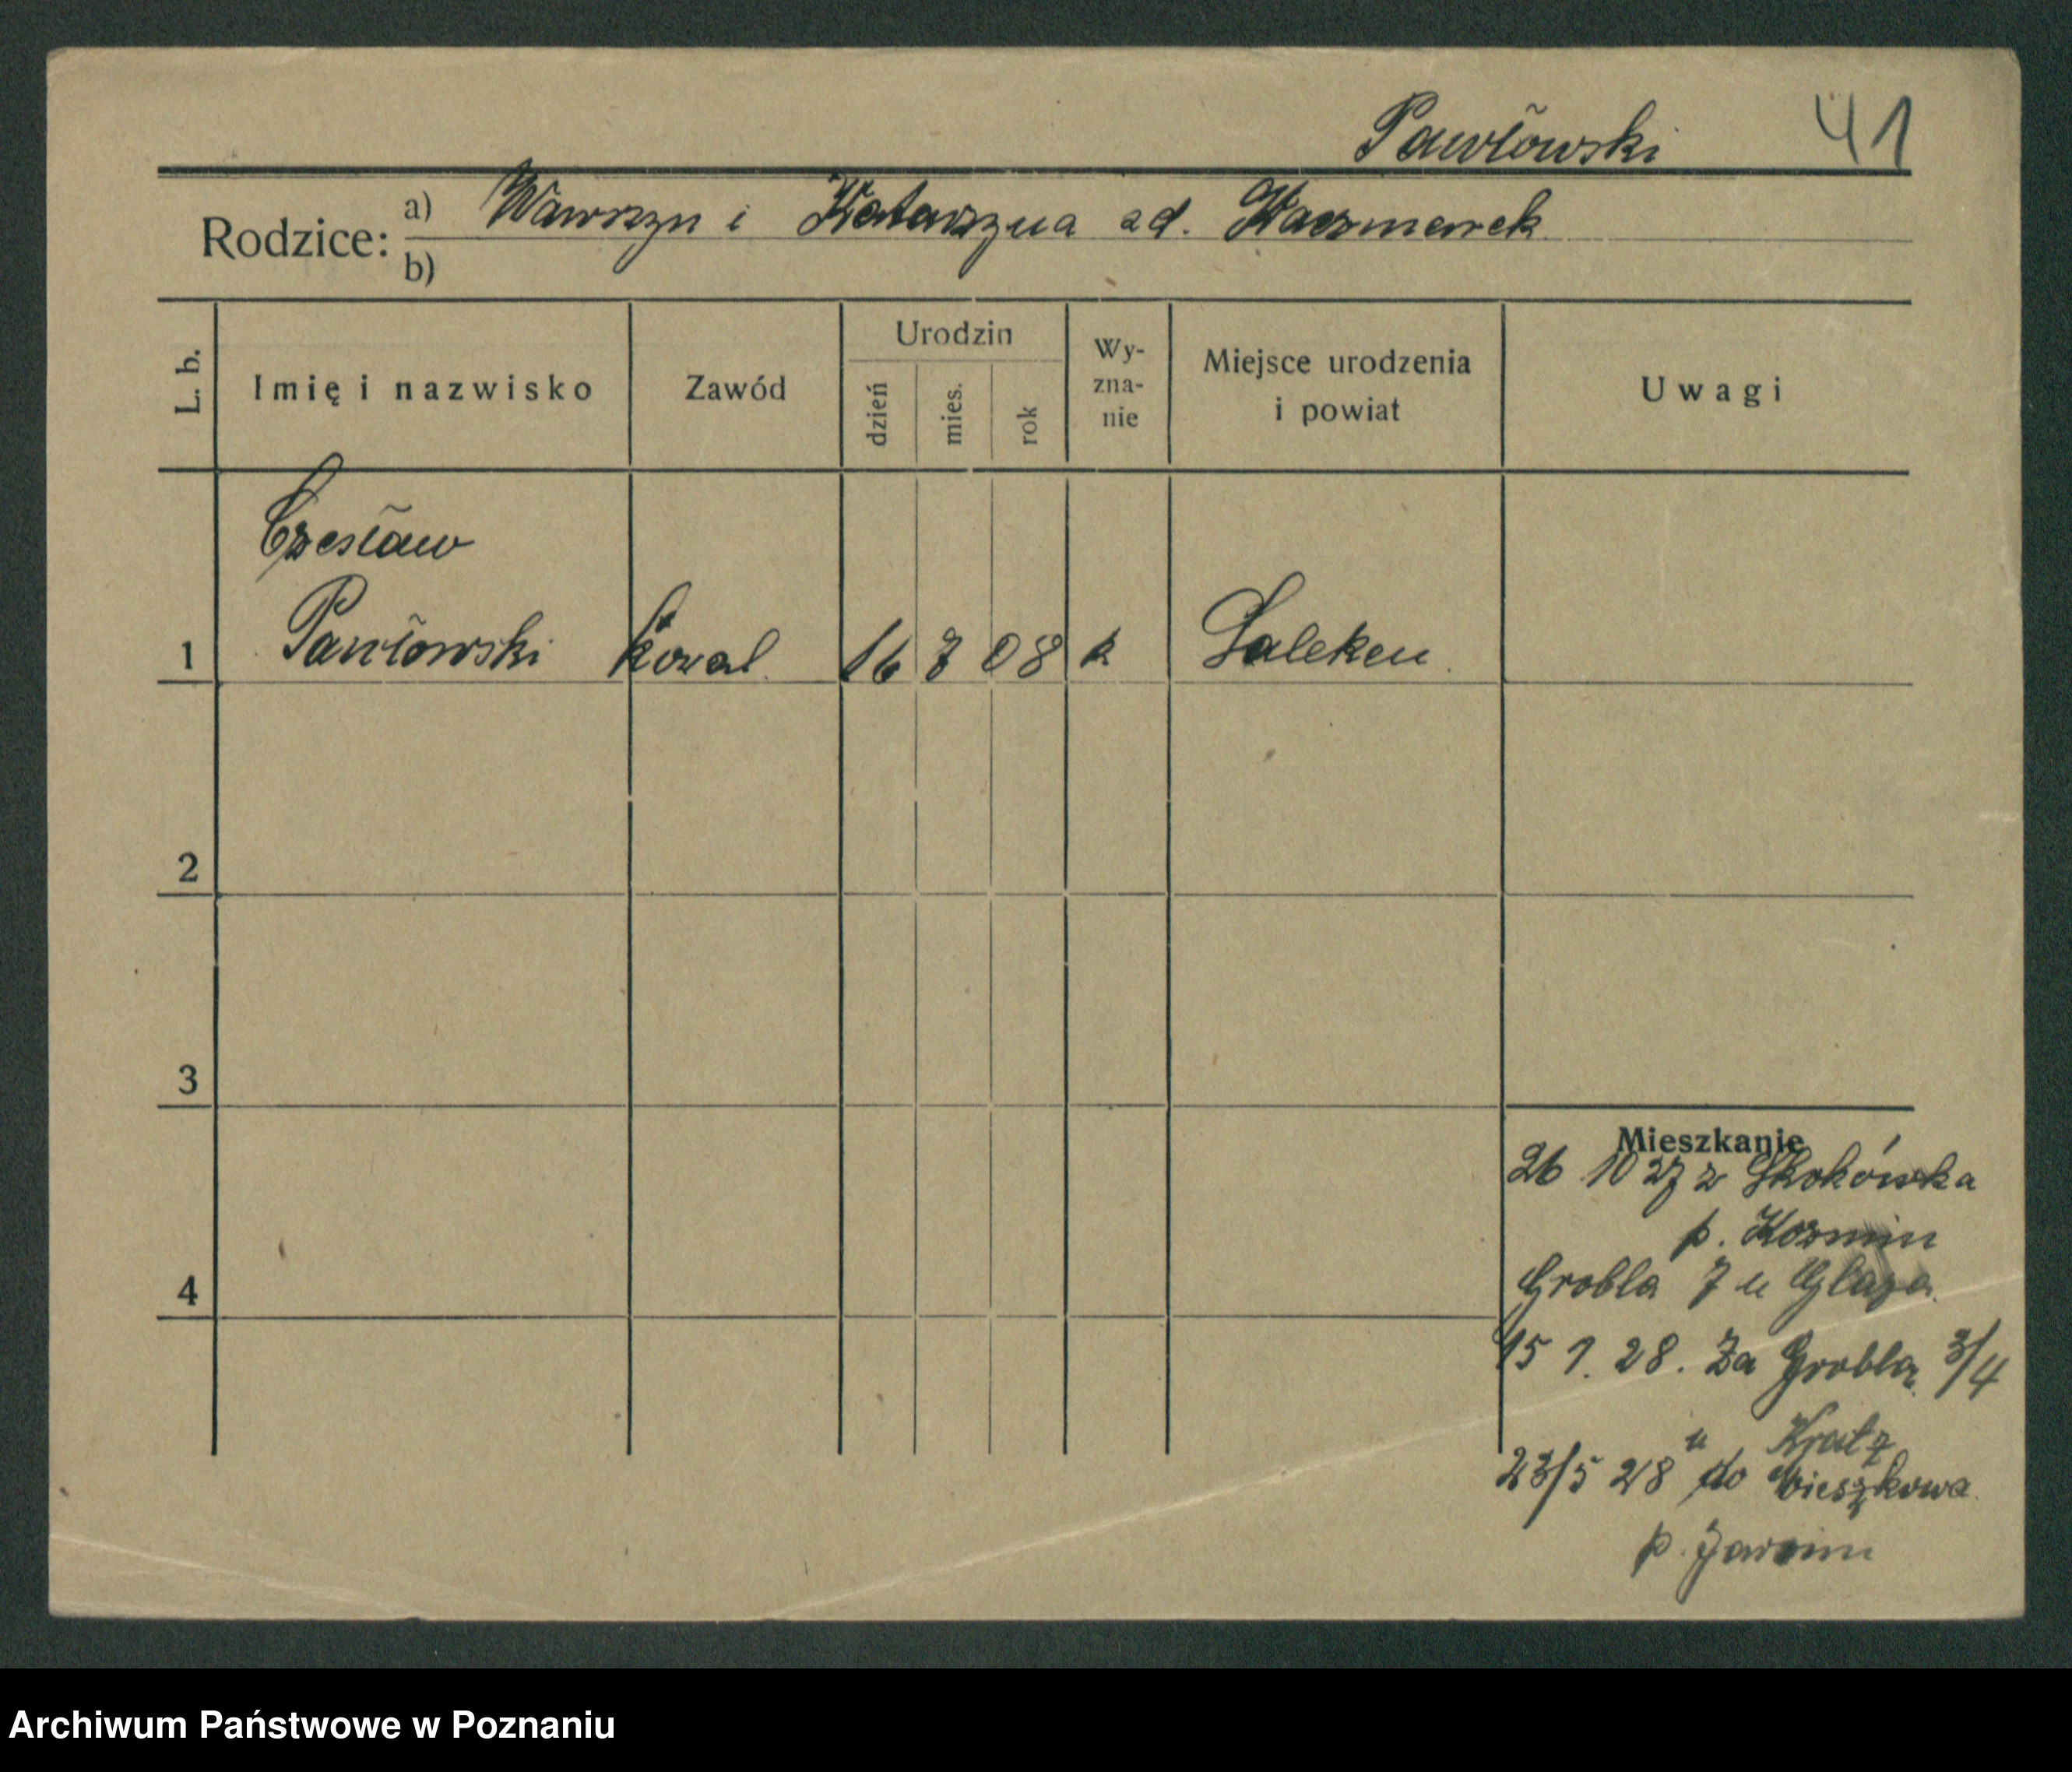 Pawłowski 41
Rodzice: a) Wawrzyn i Katarzyna zd. Kaczmarek
b)
L. b. Imię i nazwisko Zawód Urodzin dzień mies. rok Wy-zna-nie Miejsce urodzenia i powiat Uwagi
Czesław
1 Pawłowski kowal 16 7 08 k
2
3
4
Mieszkanie
26 10 27 z Skokówka
p. Kozmin
Grobla 7 u Glaza
15 1. 28. Za Groblą 3/4
u Kratz
23/5 28 do Mieszkowa
p. Jarocin
Archiwum Państwowe w Poznaniu